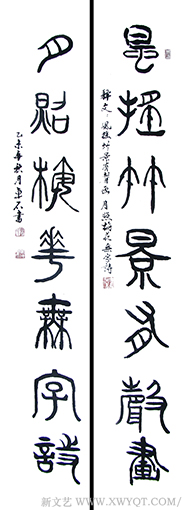 風搖竹景有聲畫
釋文：風搖竹景有聲畫 月照梅花無字詩
月照梅華無字詩
乙未年秋月書
新文艺 WWW.XWYQT.COM